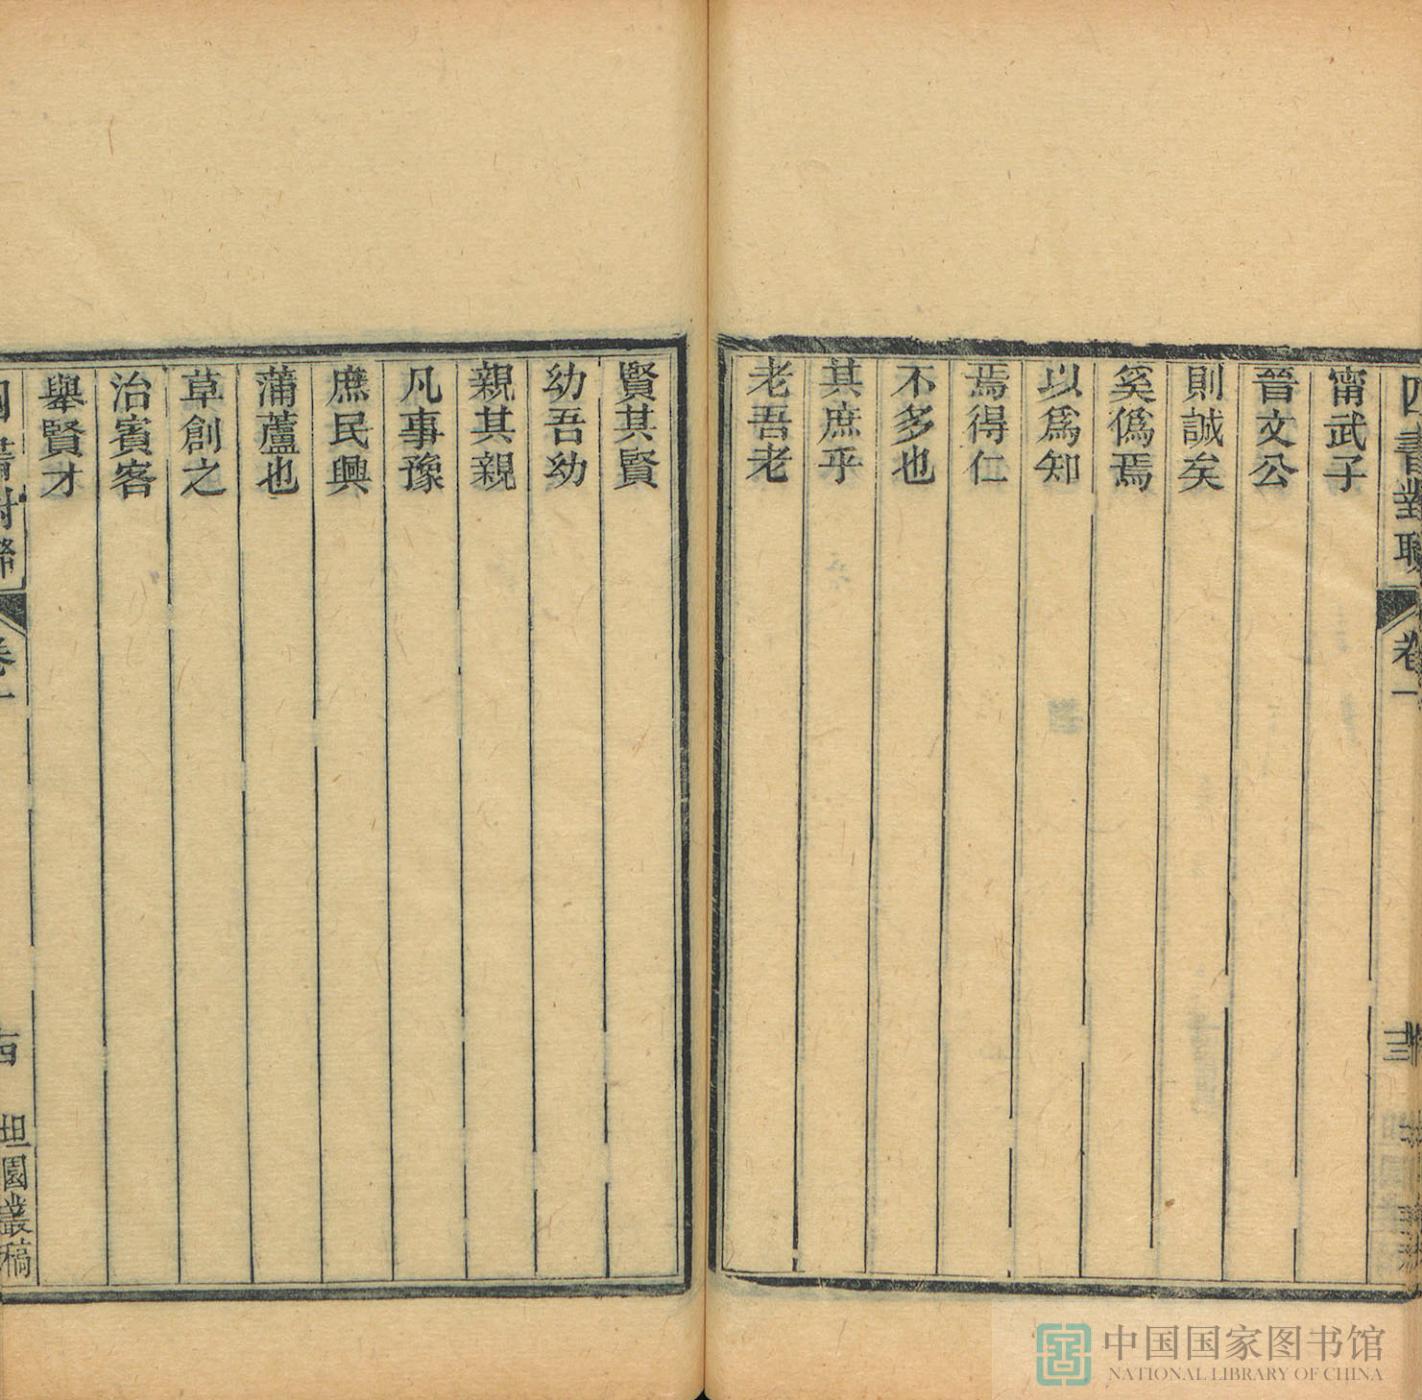 四書對聯 卷一 十三
甯武子
晉文公
則誠矣
奚僞焉
以爲知
焉得仁
不多也
其庶乎
老吾老
賢其賢
幼吾幼
親其親
凡事豫
庶民興
蒲蘆也
草創之
治賓客
舉賢才
四書對聯 卷一 坦園叢稿
中国国家图书馆
NATIONAL LIBRARY OF CHINA